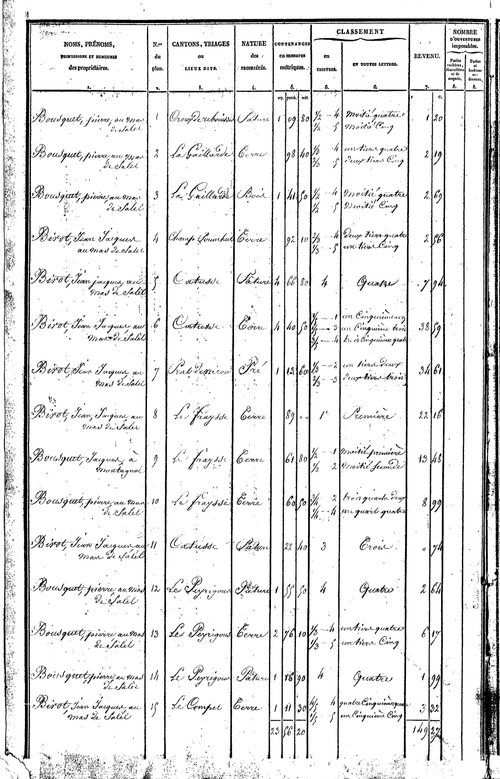 NOMS, PRÉNOMS,
PROFESSIONS ET DEMEURES
des propriétaires.
N.os
du
plan.
CANTONS, TRIAGES
ou
LIEUX DITS.
NATURE
des
propriétés.
CONTENANCES
en mesures
métriques.
CLASSEMENT
en
chiffres.
EN TOUTES LETTRES.
REVENU.
NOMBRE
D'OUVERTURES
imposables.
1. 2. 3. 4. 5. 6. 6. 7. 8. 8.
Bousquet, pierre, au mas de Salel 1 Pâture 1 09 80 1/2 - 4 Moitié quatre 1 20
1/2 - 5 Moitié Cinq
Bousquet, pierre au mas de Salel 2 La Gaillarde Terre 98 40 1/3 - 4 un tiers quatre 2 19
2/3 - 5 deux tiers Cinq
Bousquet, pierre, au mas de Salel 3 La Gaillarde Bois 1 41 50 1/2 - 4 Moitié quatre 2 69
1/2 - 5 Moitié Cinq
Birot, Jean Jacques au mas de Salel 4 Terre 92 10 2/3 - 4 deux tiers quatre 2 56
1/3 - 5 un tiers Cinq
Birot, Jean Jacques, au mas de Salel 5 Catusse Pâture 4 66 80 4 Quatre 7 94
Birot, Jean Jacques au mas de Salel 6 Catusse Terre 4 40 50 1/5 - 1 un Cinquième un 38 59
1/5 - 3 un Cinquième trois
3/5 - 4 trois Cinquièmes quatre
Birot, Jean Jacques, au mas de Salel 7 Pré 1 12 60 1/3 - 2 un tiers deux 34 61
2/3 - 3 deux tiers trois
Birot, Jean Jacques, au mas de Salel 8 Le fraysse Terre 89 " 1re Première 22 16
Bousquet, Jacques, à Montagnol 9 Le fraysse Terre 61 80 1/2 - 1 Moitié première 13 48
1/2 - 2 Moitié seconde
Bousquet, pierre, au mas de Salel 10 Le fraysse Terre 60 50 3/4 - 2 trois quarts deux 8 99
1/4 - 4 un quart quatre
Birot, Jean Jacques au mas de Salel 11 Catusse Pâture 22 40 3 Trois " 74
Bousquet, pierre au mas de Salel 12 Le Peyrigous Pâture 1 55 50 4 Quatre 2 64
Bousquet, pierre au mas de Salel 13 Le Peyrigous Terre 2 76 10 1/3 - 4 un tiers quatre 6 17
1/3 - 5 un tiers Cinq
Bousquet, pierre, au mas de Salel 14 Le Peyrigous Pâture 1 16 90 4 Quatre 1 99
Birot, Jean Jacques au mas de Salel 15 Le Compet Terre 1 11 20 4/5 - 4 quatre Cinquièmes quatre 3 32
1/5 - 5 un Cinquième Cinq
23 56 20 149 27